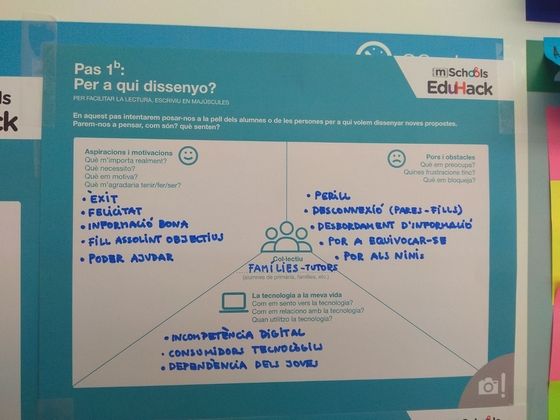 Pas 1b:
Per a qui dissenyo?
PER FACILITAR LA LECTURA, ESCRIVIU EN MAJÚSCULES
[m]Schools
EduHack
En aquest pas intentarem posar-nos a la pell dels alumnes o de les persones per a qui volem dissenyar noves propostes.
Parem-nos a pensar, com són? què senten?
Aspiracions i motivacions
Què m'importa realment?
Què necessito?
Què em motiva?
Què m'agradaria tenir/fer/ser?
• ÈXIT
• FELICITAT
• INFORMACIÓ BONA
• FILL ASSOLINT OBJECTIUS
• PODER AJUDAR
Pors i obstacles
Què em preocupa?
Quines frustracions tinc?
Què em bloqueja?
• PERILL
• DESCONNEXIÓ (PARES-FILLS)
• DESBORDAMENT D'INFORMACIÓ
• POR A EQUIVOCAR-SE
• POR ALS NINIS
Col·lectiu
FAMÍLIES-TUTORS
(alumnes de primària, famílies, etc.)
La tecnologia a la meva vida
Com em sento vers la tecnologia?
Com em relaciono amb la tecnologia?
Quan utilitzo la tecnologia?
• INCOMPETÈNCIA DIGITAL
• CONSUMIDORS TECNOLÒGICS
• DEPENDÈNCIA DELS JOVES
ols
ck